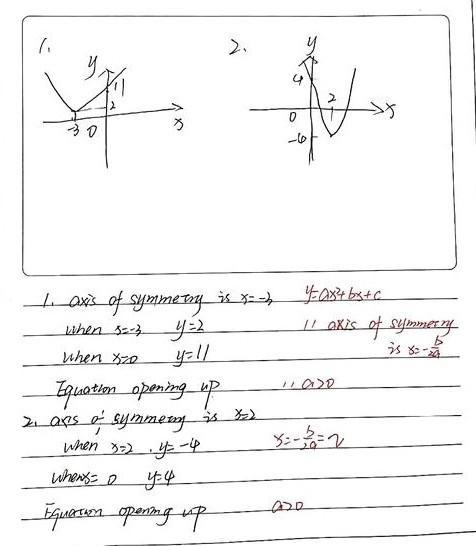 1.
y
11
2
-3 0
x
2.
y
4
2
0
x
-4
1. axis of symmetry is x=-3 y=ax²+bx+c
when x=-3 y=2 ∵ axis of symmetry
is x=-b/2a
when x=0 y=11
Equation opening up ∵ a>0
2. axis of symmetry is x=2
when x=2, y=-4 x=-b/2a=2
when x=0 y=4
Equation opening up a>0